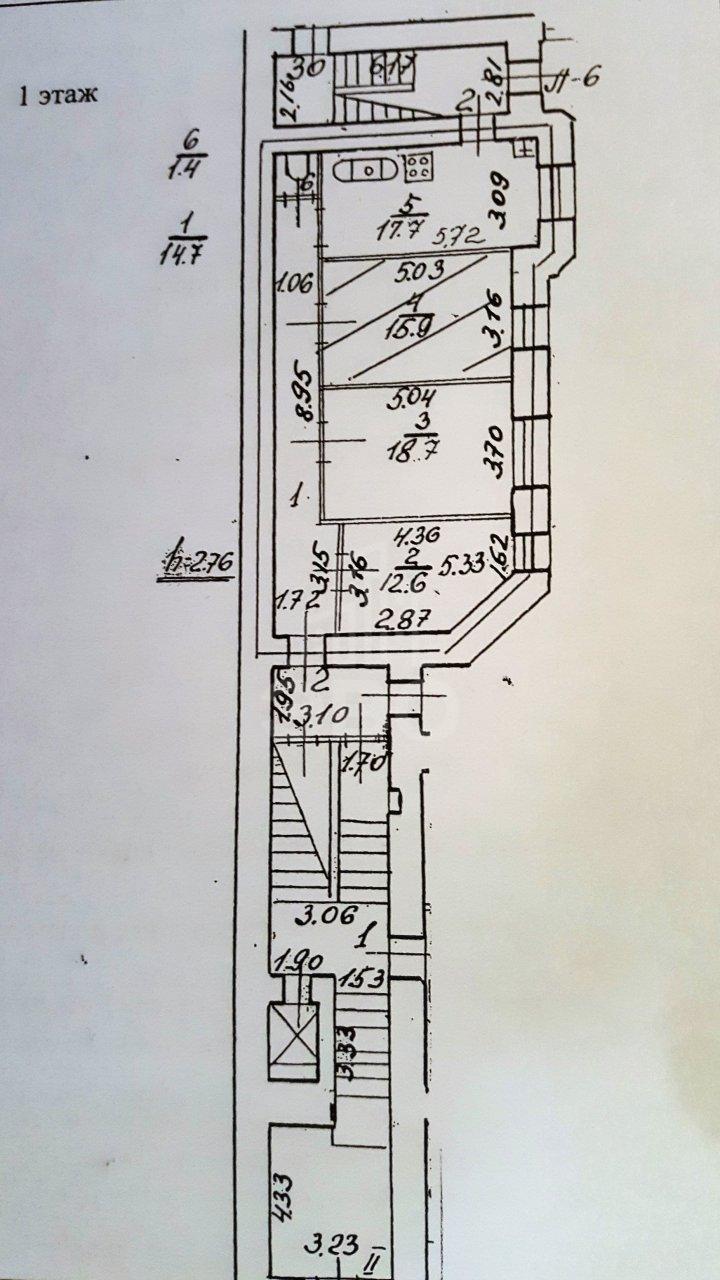 1 этаж
30
6.17
2.16
2.81
Л-6
2
6
1.4
6
1
14.7
5
17.7
3.09
5.72
1.06
5.03
4
15.9
3.16
8.95
5.04
3
18.7
3.70
1
4.36
2
12.6
5.33
1.62
3.15
3.16
h=2.76
1.72
2.87
2
1.95
3.10
1.70
3.06
1
1.90
1.53
3.33
4.33
3.23
II